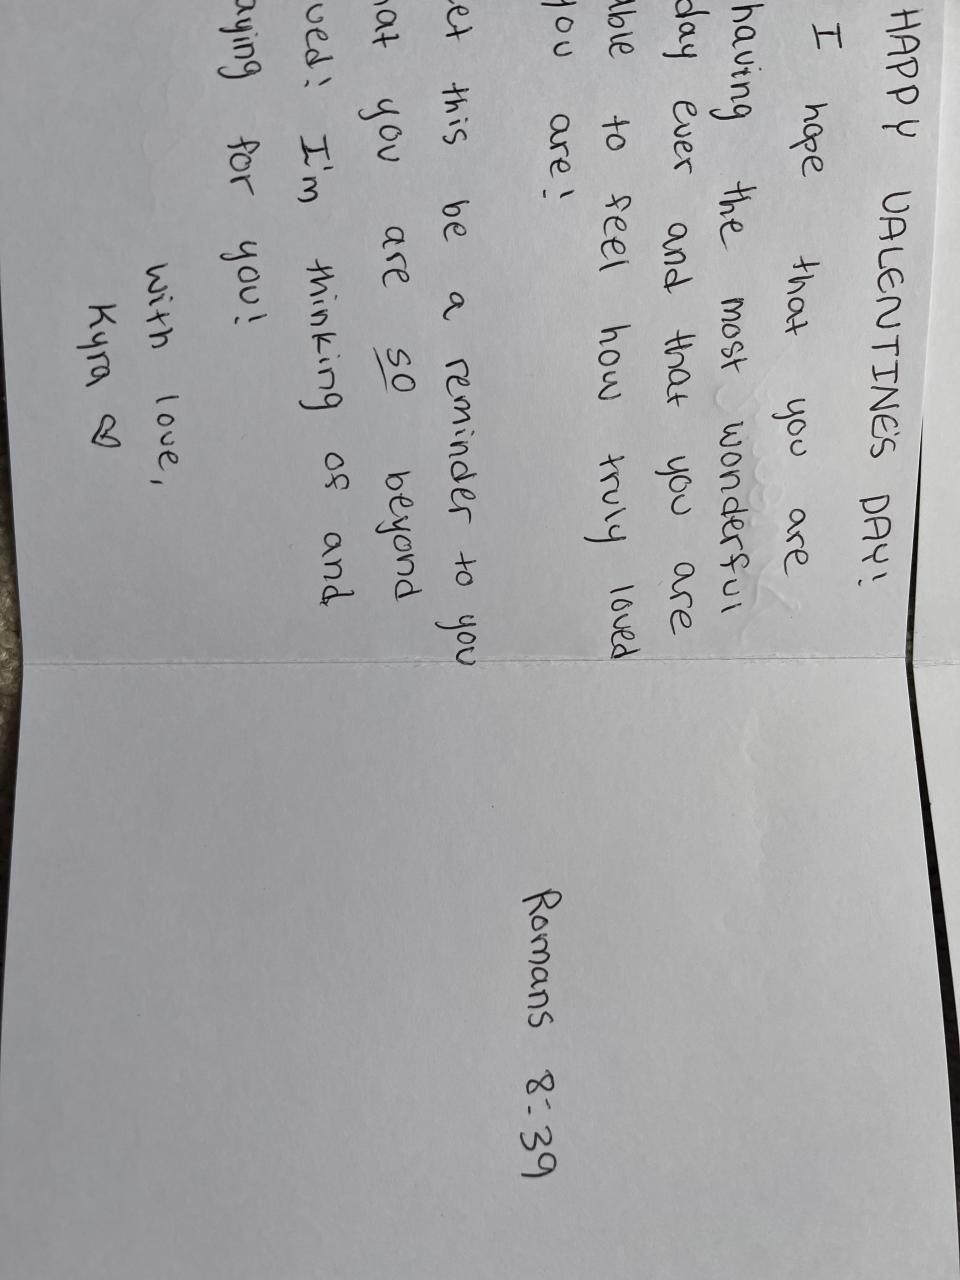 HAPPY VALENTINE'S DAY!
I hope that you are
having the most wonderful
day ever and that you are
able to feel how truly loved
you are!
et this be a reminder to you
hat you are so beyond
ved! I'm thinking of and
aying for you!
with love,
Kyra ♡
Romans 8:39